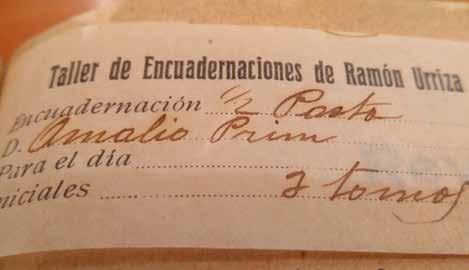 Taller de Encuadernaciones de Ramón Urriza
Encuadernación 1/2 Pasta
D. Amalio Prim
Para el día
niciales 2 tomos